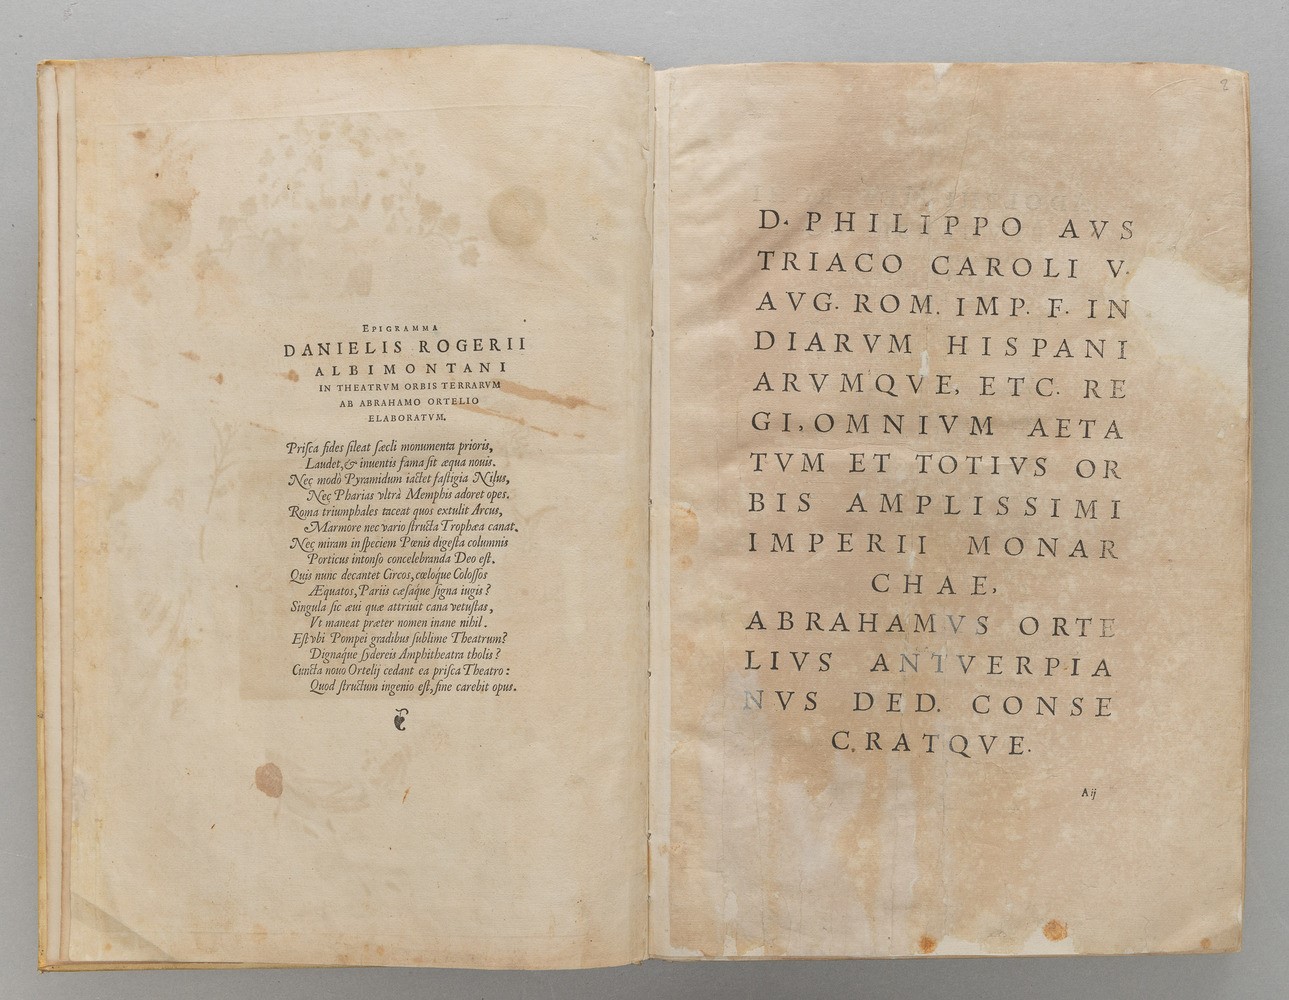 EPIGRAMMA
DANIELIS ROGERII
ALBIMONTANI
IN THEATRVM ORBIS TERRARVM
AB ABRAHAMO ORTELIO
ELABORATVM.
Priſca fides ſileat ſæcli monumenta prioris,
Laudet, & inuentis fama ſit æqua nouis.
Neq; modò Pyramidum iactet faſtigia Nilus,
Neq; Pharias vltrà Memphis adoret opes.
Roma triumphales taceat quos extulit Arcus,
Marmore nec vario ſtructa Trophæa canat.
Neq; miram in ſpeciem Pœnis digeſta columnis
Porticus intonſo concelebranda Deo eſt.
Quis nunc decantet Circos, cœloque Coloſſos
Æquatos, Pariis cæſaque ſigna iugis?
Singula ſic æui quæ attriuit cana vetuſtas,
Vt maneat præter nomen inane nihil.
Eſt vbi Pompei gradibus ſublime Theatrum?
Dignaque ſydereis Amphitheatra tholis?
Cuncta nouo Ortelij cedant ea priſca Theatro:
Quod ſtructum ingenio eſt, ſine carebit opus.
2
D. PHILIPPO AVS
TRIACO CAROLI V.
AVG. ROM. IMP. F. IN
DIARVM HISPANI
ARVMQVE, ETC. RE
GI, OMNIVM AETA
TVM ET TOTIVS OR
BIS AMPLISSIMI
IMPERII MONAR
CHAE,
ABRAHAMVS ORTE
LIVS ANTVERPIA
NVS DED. CONSE
CRATQVE.
A ij